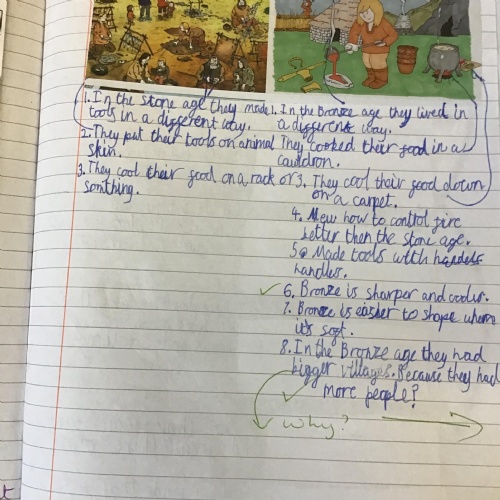 1. In the stone age they made
tools in a different way.
2. They put their tools on animal
skin.
3. They cool their food on a rack or
somthing.
1. In the Bronze age they lived in
a different way.
They cooked their food in a
cauldron.
3. They cool their food down
on a carpet.
4. New how to control fire
better then the stone age.
5. Made tools with
handles.
6. Bronze is sharper and
7. Bronze is easier to shape when
its soft.
8. In the Bronze age they had
bigger villages. Because they had
more people?
why?